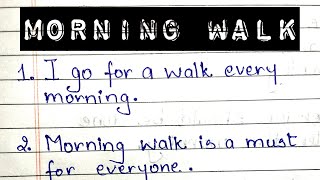 MORNING WALK
1. I go for a walk every
morning.
2. Morning walk is a must
for everyone.